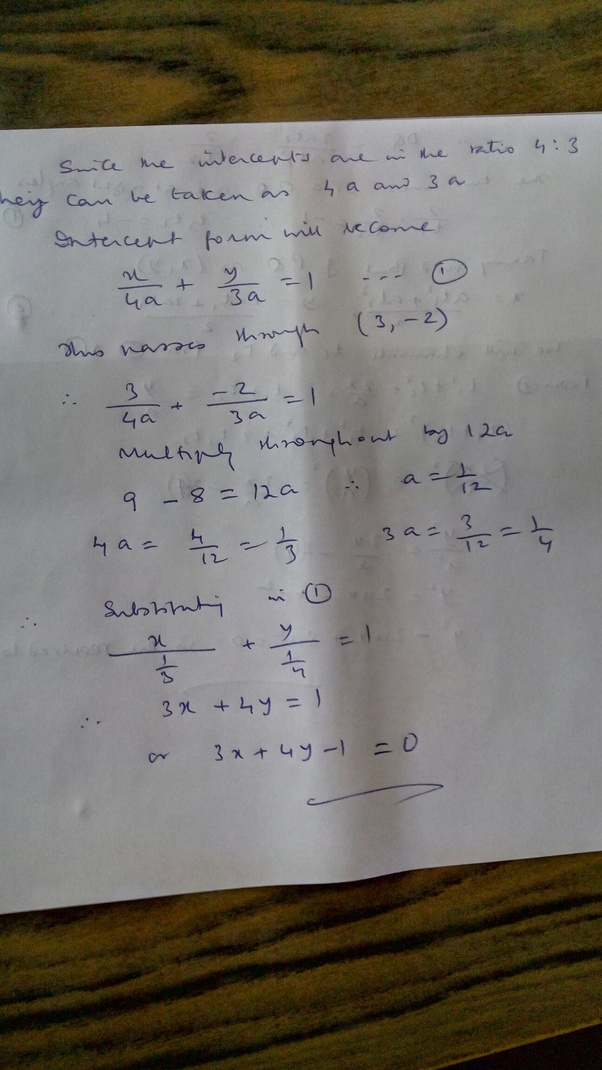 Since the intercepts are in the ratio 4:3
they can be taken as 4a and 3a
Intercept form will become
x/4a + y/3a = 1 --- ①
This passes through (3, -2)
∴ 3/4a + -2/3a = 1
Multiply throughout by 12a
9 - 8 = 12a ∴ a = 1/12
4a = 4/12 = 1/3 3a = 3/12 = 1/4
∴ Substituting in ①
x/(1/3) + y/(1/4) = 1
∴ 3x + 4y = 1
or 3x + 4y - 1 = 0